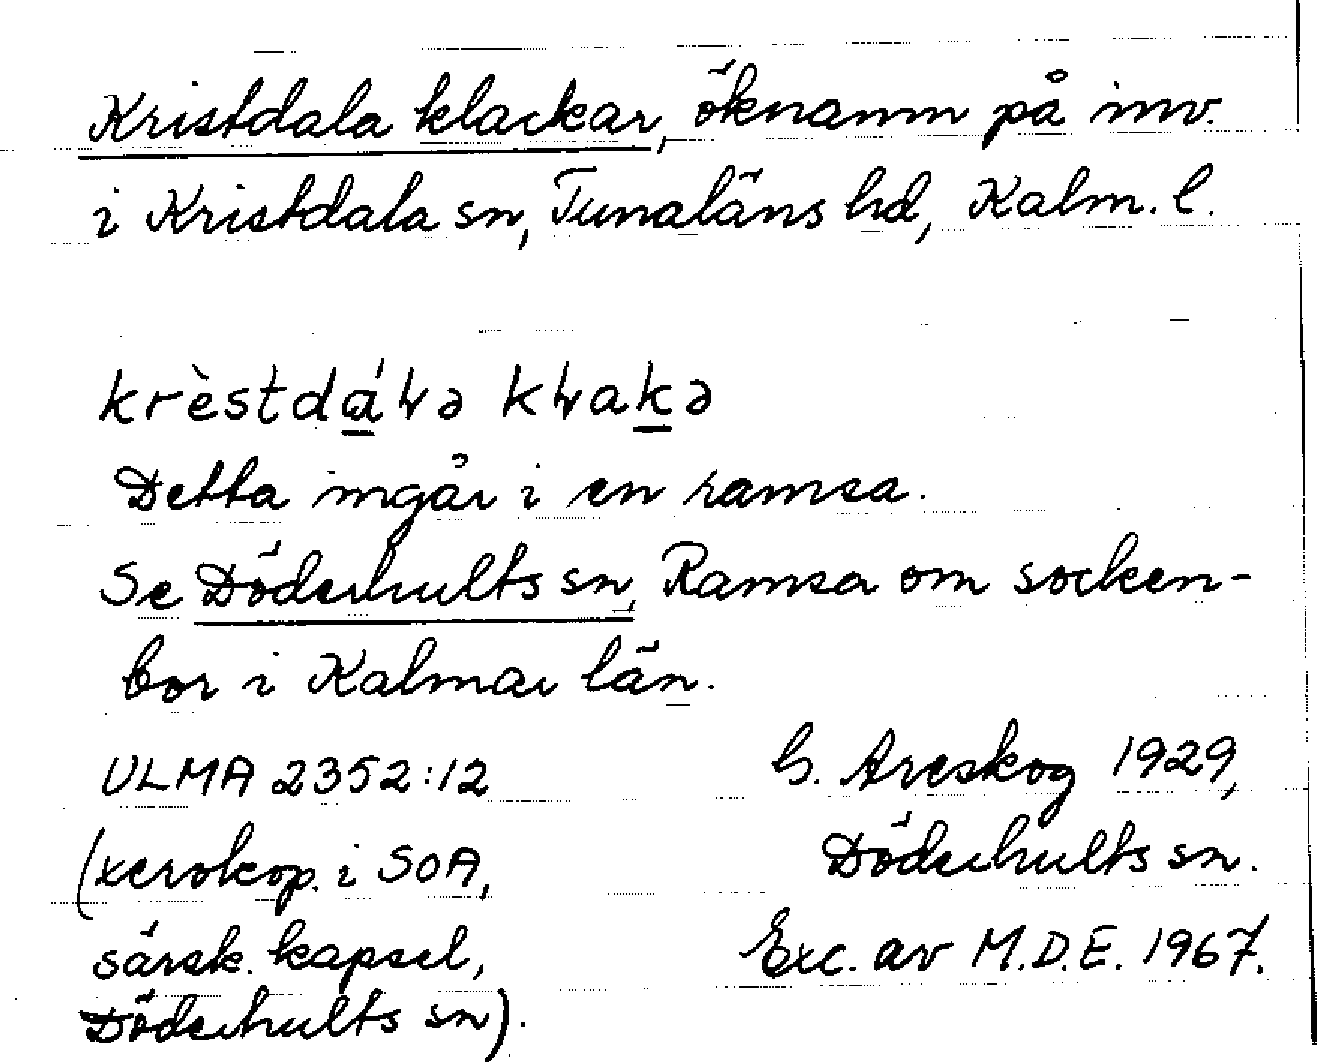 Kristdala klackar, öknamn på inv.
i Kristdala sn, Tunaläns hd, Kalm. l.
krèstdáɫə kɫakə
Detta ingår i en ramsa.
Se Döderhults sn, Ramsa om socken-
bor i Kalmar län.
ULMA 2352:12
G. Areskog 1929,
Döderhults sn.
(xerokop. i SOA,
särsk. kapsel,
Döderhults sn).
Exc. av M.D.E. 1967.